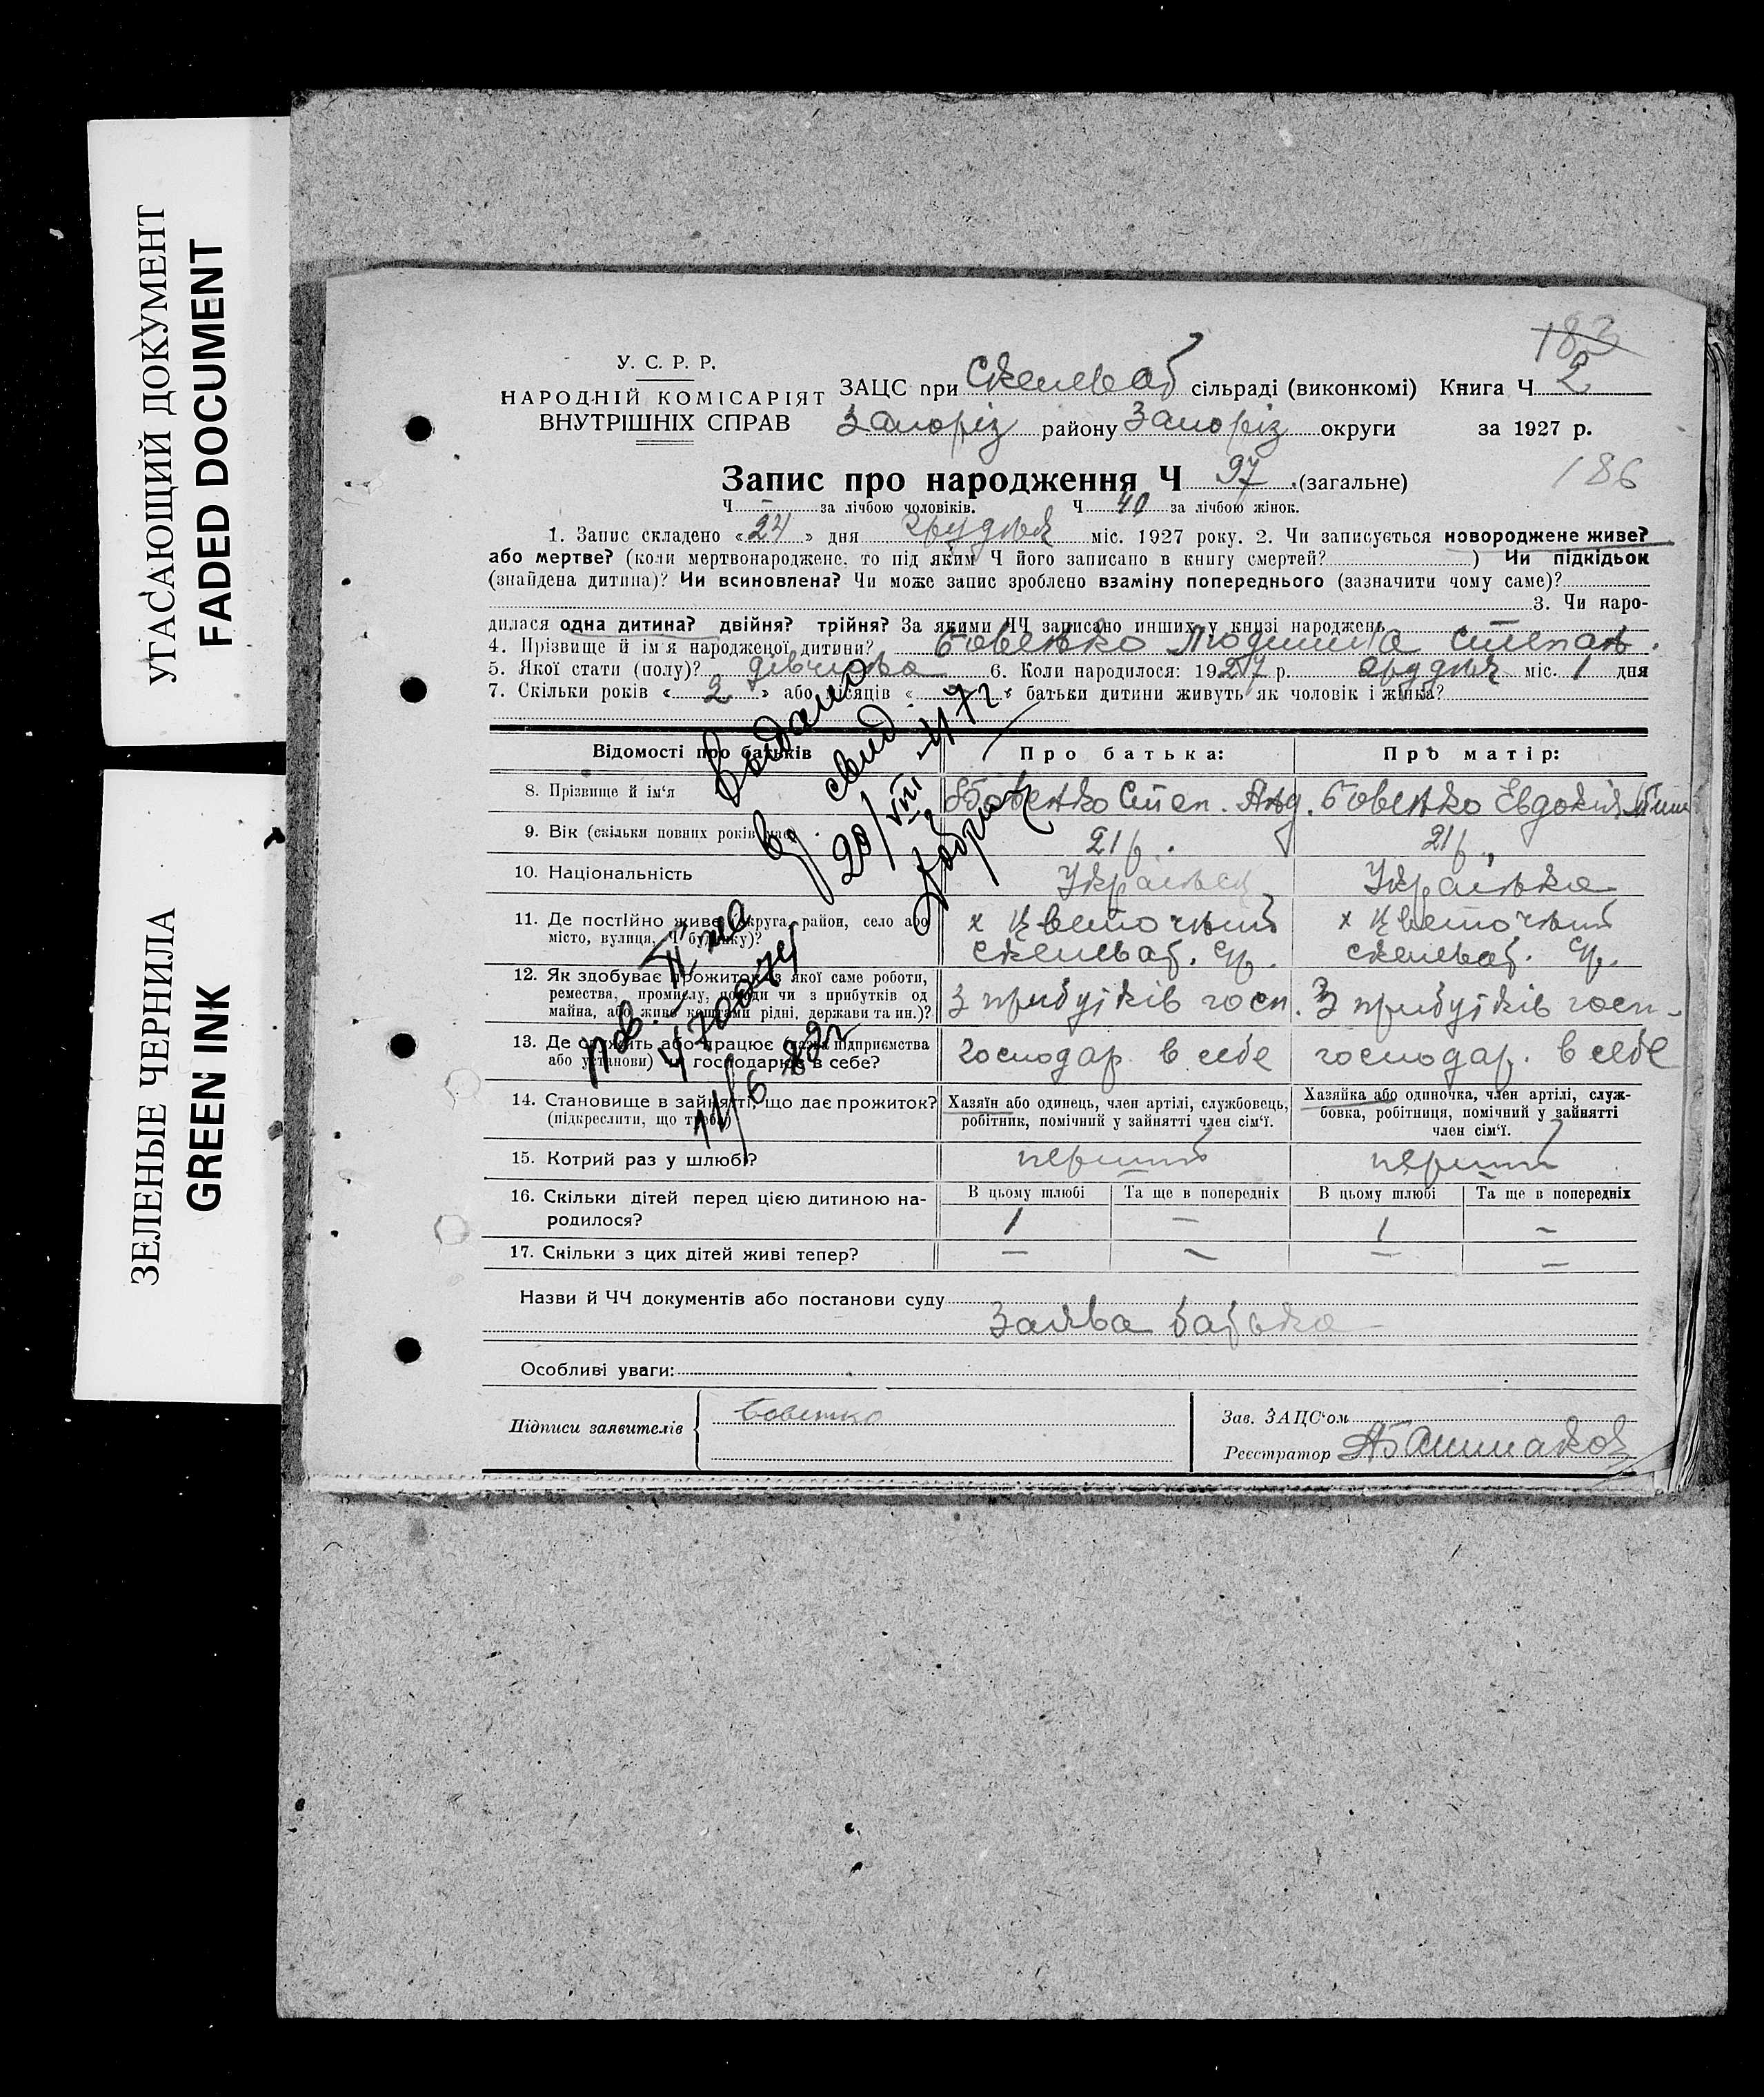 УГАСАЮЩИЙ ДОКУМЕНТ
FADED DOCUMENT
ЗЕЛЕНЫЕ ЧЕРНИЛА
GREEN INK
183
У. С. Р. Р.
НАРОДНІЙ КОМІСАРІЯТ
ВНУТРІШНІХ СПРАВ
ЗАЦС при Скелеват сільраді (виконкомі) Книга Ч 2
Запоріз району Запоріз округи за 1927 р.
Запис про народження Ч 97 (загальне)
186
Ч за лічбою чоловіків. Ч 40 за лічбою жінок.
1. Запис складено «24» дня грудня міс. 1927 року. 2. Чи записується новороджене живе?
або мертве? (коли мертвонароджене, то під яким Ч його записано в книгу смертей? ) Чи підкідьок
(знайдена дитина)? Чи всиновлена? Чи може запис зроблено взаміну попереднього (зазначити чому саме)?
3. Чи наро-
дилася одна дитина? двійня? трійня? За якими ЧЧ записано инших у книзі народжень
4. Прізвище й ім'я народженої дитини? Бовенко Людмила Степан.
5. Якої стати (полу)? дівчина 6. Коли народилося: 1927 р. грудня міс. 1 дня
7. Скільки років « 2 » або місяців « » батьки дитини живуть як чоловік і жінка?
Відомості про батьків Про батька: Про матір:
8. Прізвище й ім'я Бовенко Степ. Анд. Бовенко Евдокія
9. Вік (скільки повних років має) 21 р. 21 р.
10. Національність Українец Українка
11. Де постійно живе (округа, район, село або х Цветочний х Цветочний
місто, вулиця, Ч будинку)? Скелеват. С/р. Скелеват. С/р.
12. Як здобуває прожиток (з якої саме роботи,
ремества, промислу, посади чи з прибутків од З прибутків госп. З прибутків госп.
майна, або живе коштами рідні, держави та ин.)?
13. Де служить або працює (назва підприємства господар в себе господар. в себе
або установи) чи господарює в себе?
14. Становище в зайнятті, що дає прожиток? Хазяїн або одинець, член артілі, службовець, Хазяйка або одиночка, член артілі, служ-
(підкреслити, що треба) робітник, помічний у зайнятті член сім'ї. бовка, робітниця, помічний у зайнятті
член сім'ї.
15. Котрий раз у шлюбі? перший перший
16. Скільки дітей перед цією дитиною на- В цьому шлюбі Та ще в попередніх В цьому шлюбі Та ще в попередніх
родилося? 1 – 1 –
17. Скільки з цих дітей живі тепер? – – – –
Назви й ЧЧ документів або постанови суду
Заява батька
Особливі уваги:
Підписи заявителів Бовенко
Зав. ЗАЦС'ом
Реєстратор